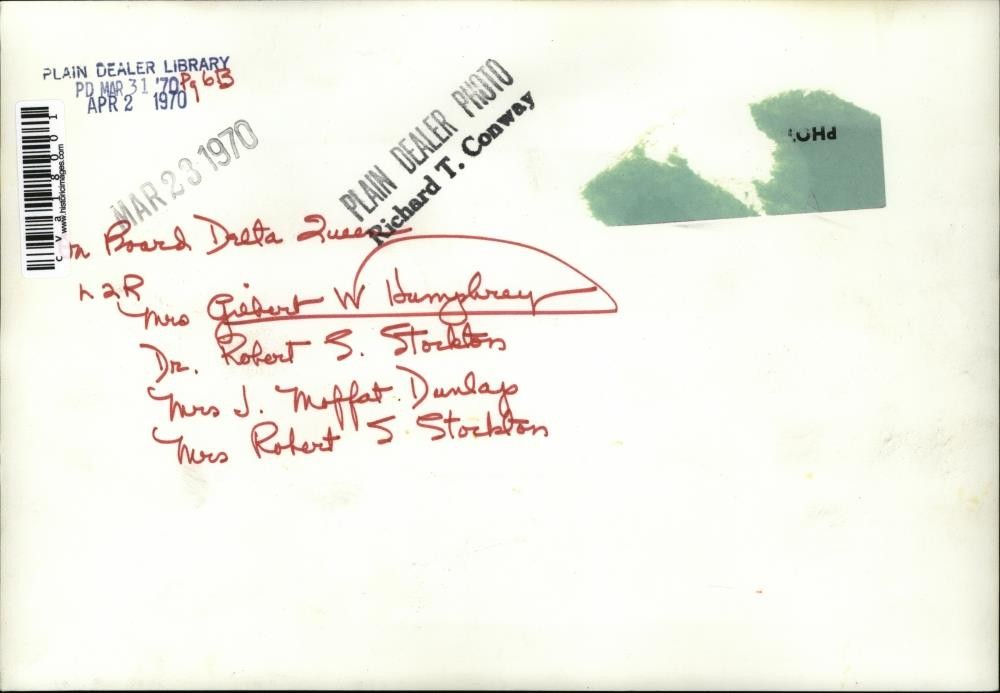 PLAIN DEALER LIBRARY
PD MAR 31 '70 Pg 6B
APR 2 1970
MAR 23 1970
PLAIN DEALER PHOTO
Richard T. Conway
PHO
cva18001
www.historicimages.com
on Board Delta Queen
L 2 R
Mrs Gilbert W Humphrey
Dr. Robert S. Stockton
Mrs J. Moffat Dunlap
Mrs Robert S Stockton